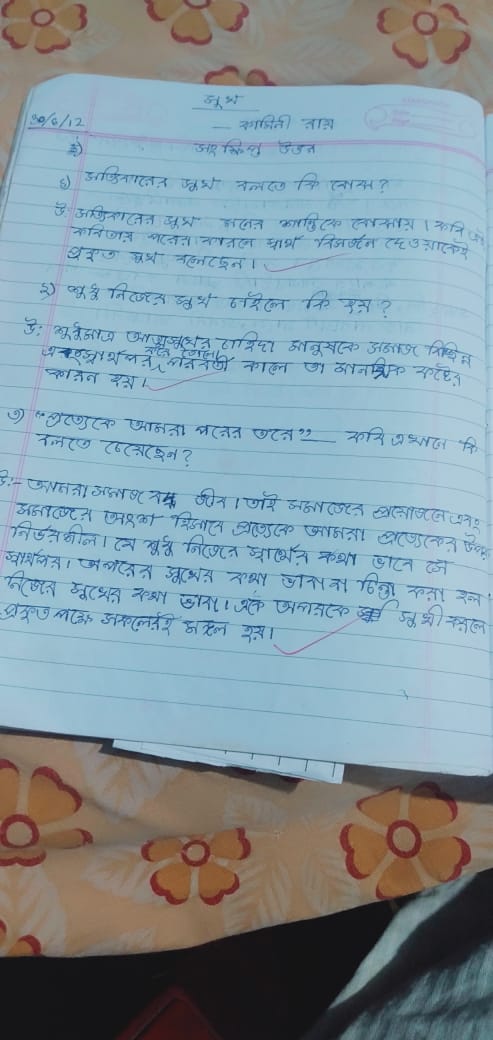 সুখ
— কামিনী রায়
২০/৬/১২
২) সংক্ষিপ্ত উত্তর
১) সত্যিকারের সুখ বলতে কি বোঝ?
উ: সত্যিকারের সুখ মনের শান্তিকে বোঝায়। কবি এই
কবিতায় পরের কারনে স্বার্থ বিসর্জন দেওয়াকেই
প্রকৃত সুখ বলেছেন।
২) শুধু নিজের সুখ চাইলে কি হয়?
উ: শুধুমাত্র আত্মসুখের চাহিদা মানুষকে সমাজ বিছিন্ন
এবং স্বার্থপর করে তোলে, পরবর্তী কালে তা মানসিক কষ্টের
কারন হয়।
৩) "প্রত্যেকে আমরা পরের তরে" — কবি এখানে কি
বলতে চেয়েছেন?
উ:- আমরা সমাজ বদ্ধ জীব। তাই সমাজের প্রয়োজনে এবং
সমাজের অংশ হিসাবে প্রত্যেকে আমরা প্রত্যেকের উপর
নির্ভরশীল। যে শুধু নিজের স্বার্থের কথা ভাবে সে
স্বার্থপর। অপরের সুখের কথা ভাবা বা চিন্তা করা হল
নিজের সুখের কথা ভাবা। একে অপরকে সুখী করলে
প্রকৃত পক্ষে সকলেরই মঙ্গল হয়।